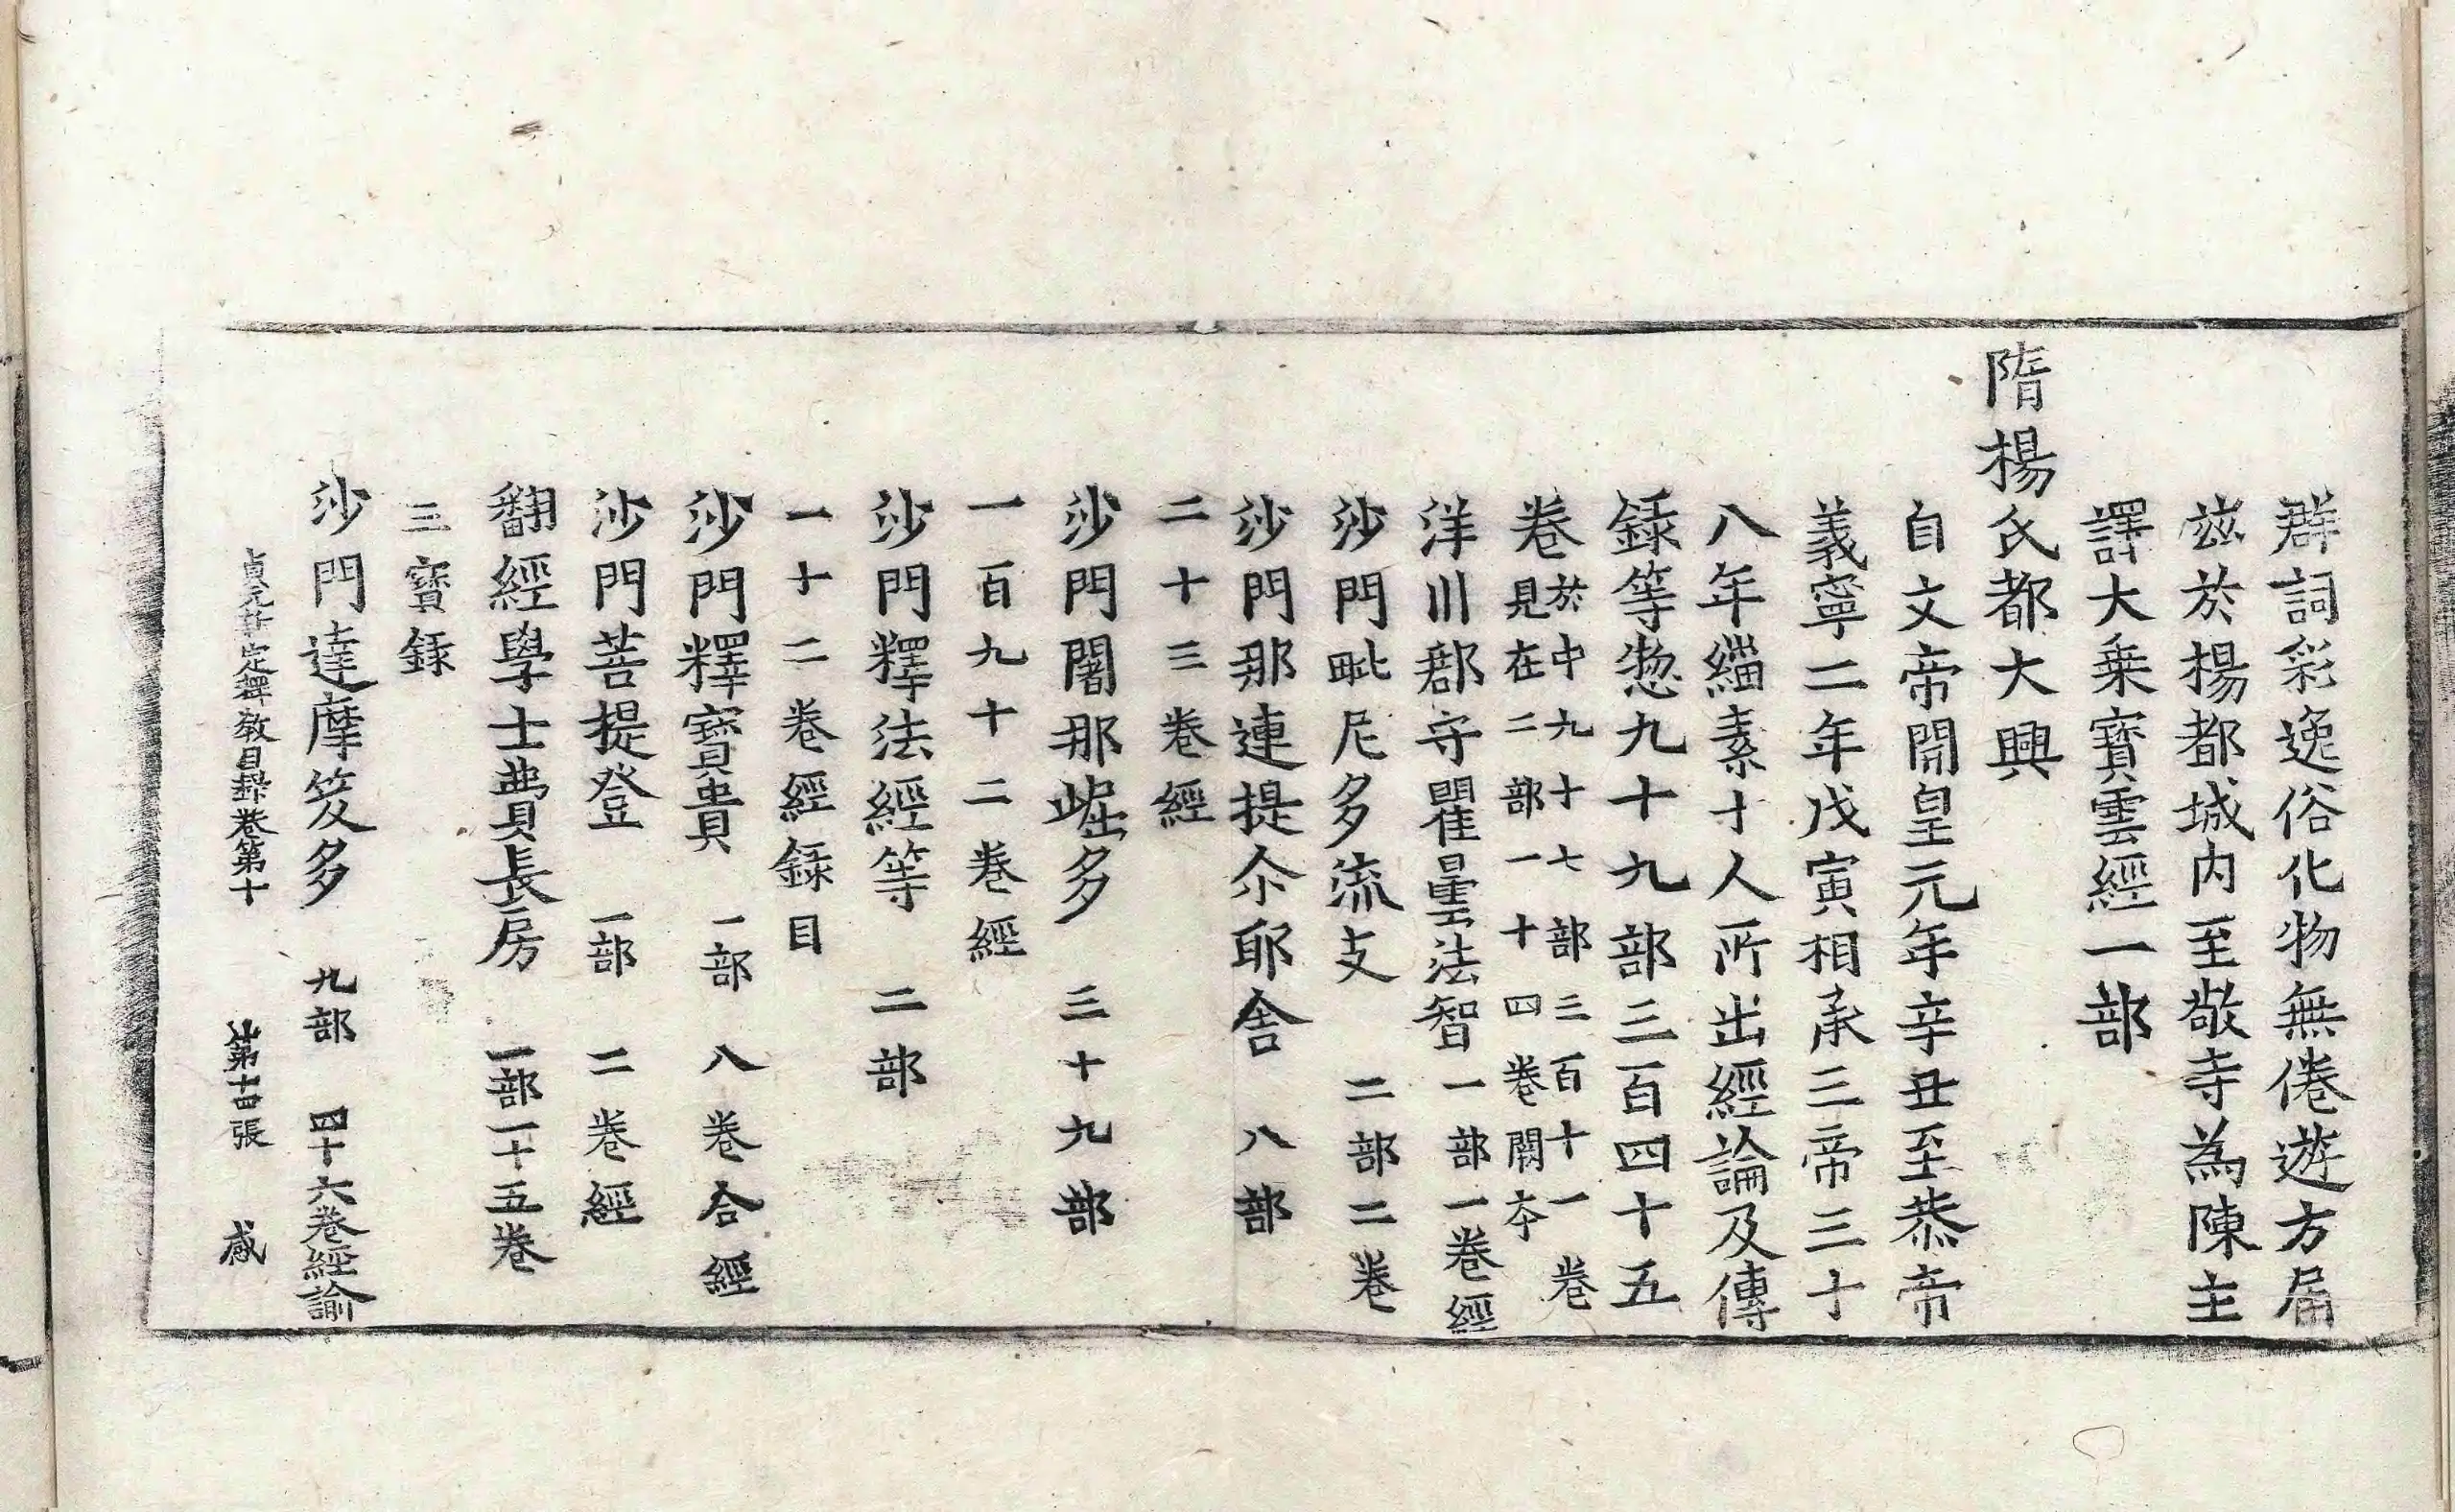 群詞彩逸俗化物無倦遊方届
玆於楊都城内至敬寺為陳主
譯大乗寶雲經一部
隋楊氏都大興
自文帝開皇元年辛丑至恭帝
義寧二年戊寅相承三帝三十
八年緇素十人所出經論及傳
録等惣九十九部三百四十五
卷於中九十七部三百十一卷
見在二部一十四卷闕夲
洋川郡守瞿曇法智一部一卷經
沙門毗尼多流支二部二卷
沙門那連提尒耶舍八部
二十三卷經
沙門闍那崛多三十九部
一百九十二卷經
沙門釋法經等二部
一十二卷經録目
沙門釋寶貴一部八卷合經
沙門菩提登一部二卷經
翻經學士費長房一部一十五卷
三寶録
沙門達摩笈多九部四十六卷經論
貞元新定釋教目録卷第十第十四張感